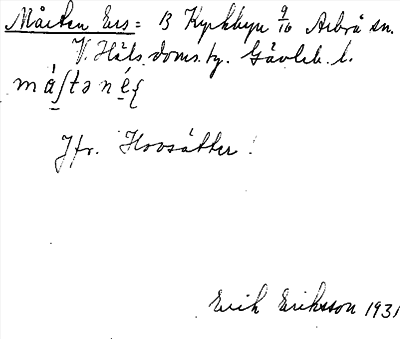 Mårten Ers = B Kyrkbyn 9/10 Arbrå sn.
V. Häls. doms. tg. Gävleb. l.
má̱ʃtəné̱ʃ
Jfr. Hovsätter.
Erik Eriksson 1931